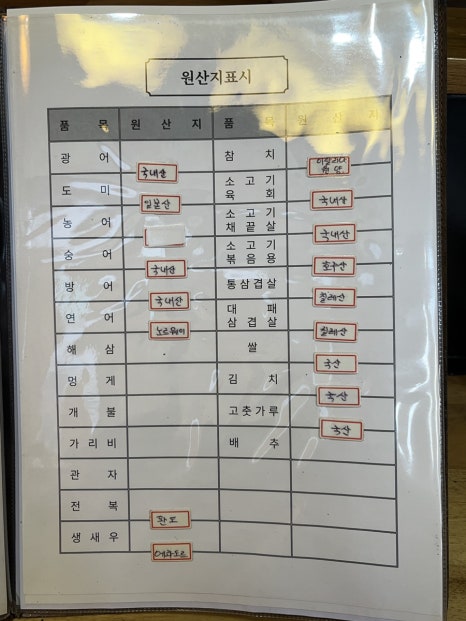 원산지표시
품 목 원 산 지 품 목 원 산 지
광 어 국내산 참 치 원양
도 미 일본산 소 고 기 육 회 국내산
농 어 소 고 기 채 끝 살 국내산
숭 어 국내산 소 고 기 볶 음 용 호주산
방 어 국내산 통 삼 겹 살 칠레산
연 어 노르웨이 대 패 삼 겹 살 칠레산
해 삼 쌀 국산
멍 게 김 치 국산
개 불 고 춧 가 루 국산
가 리 비 배 추
관 자
전 복 완도
생 새 우 에콰도르